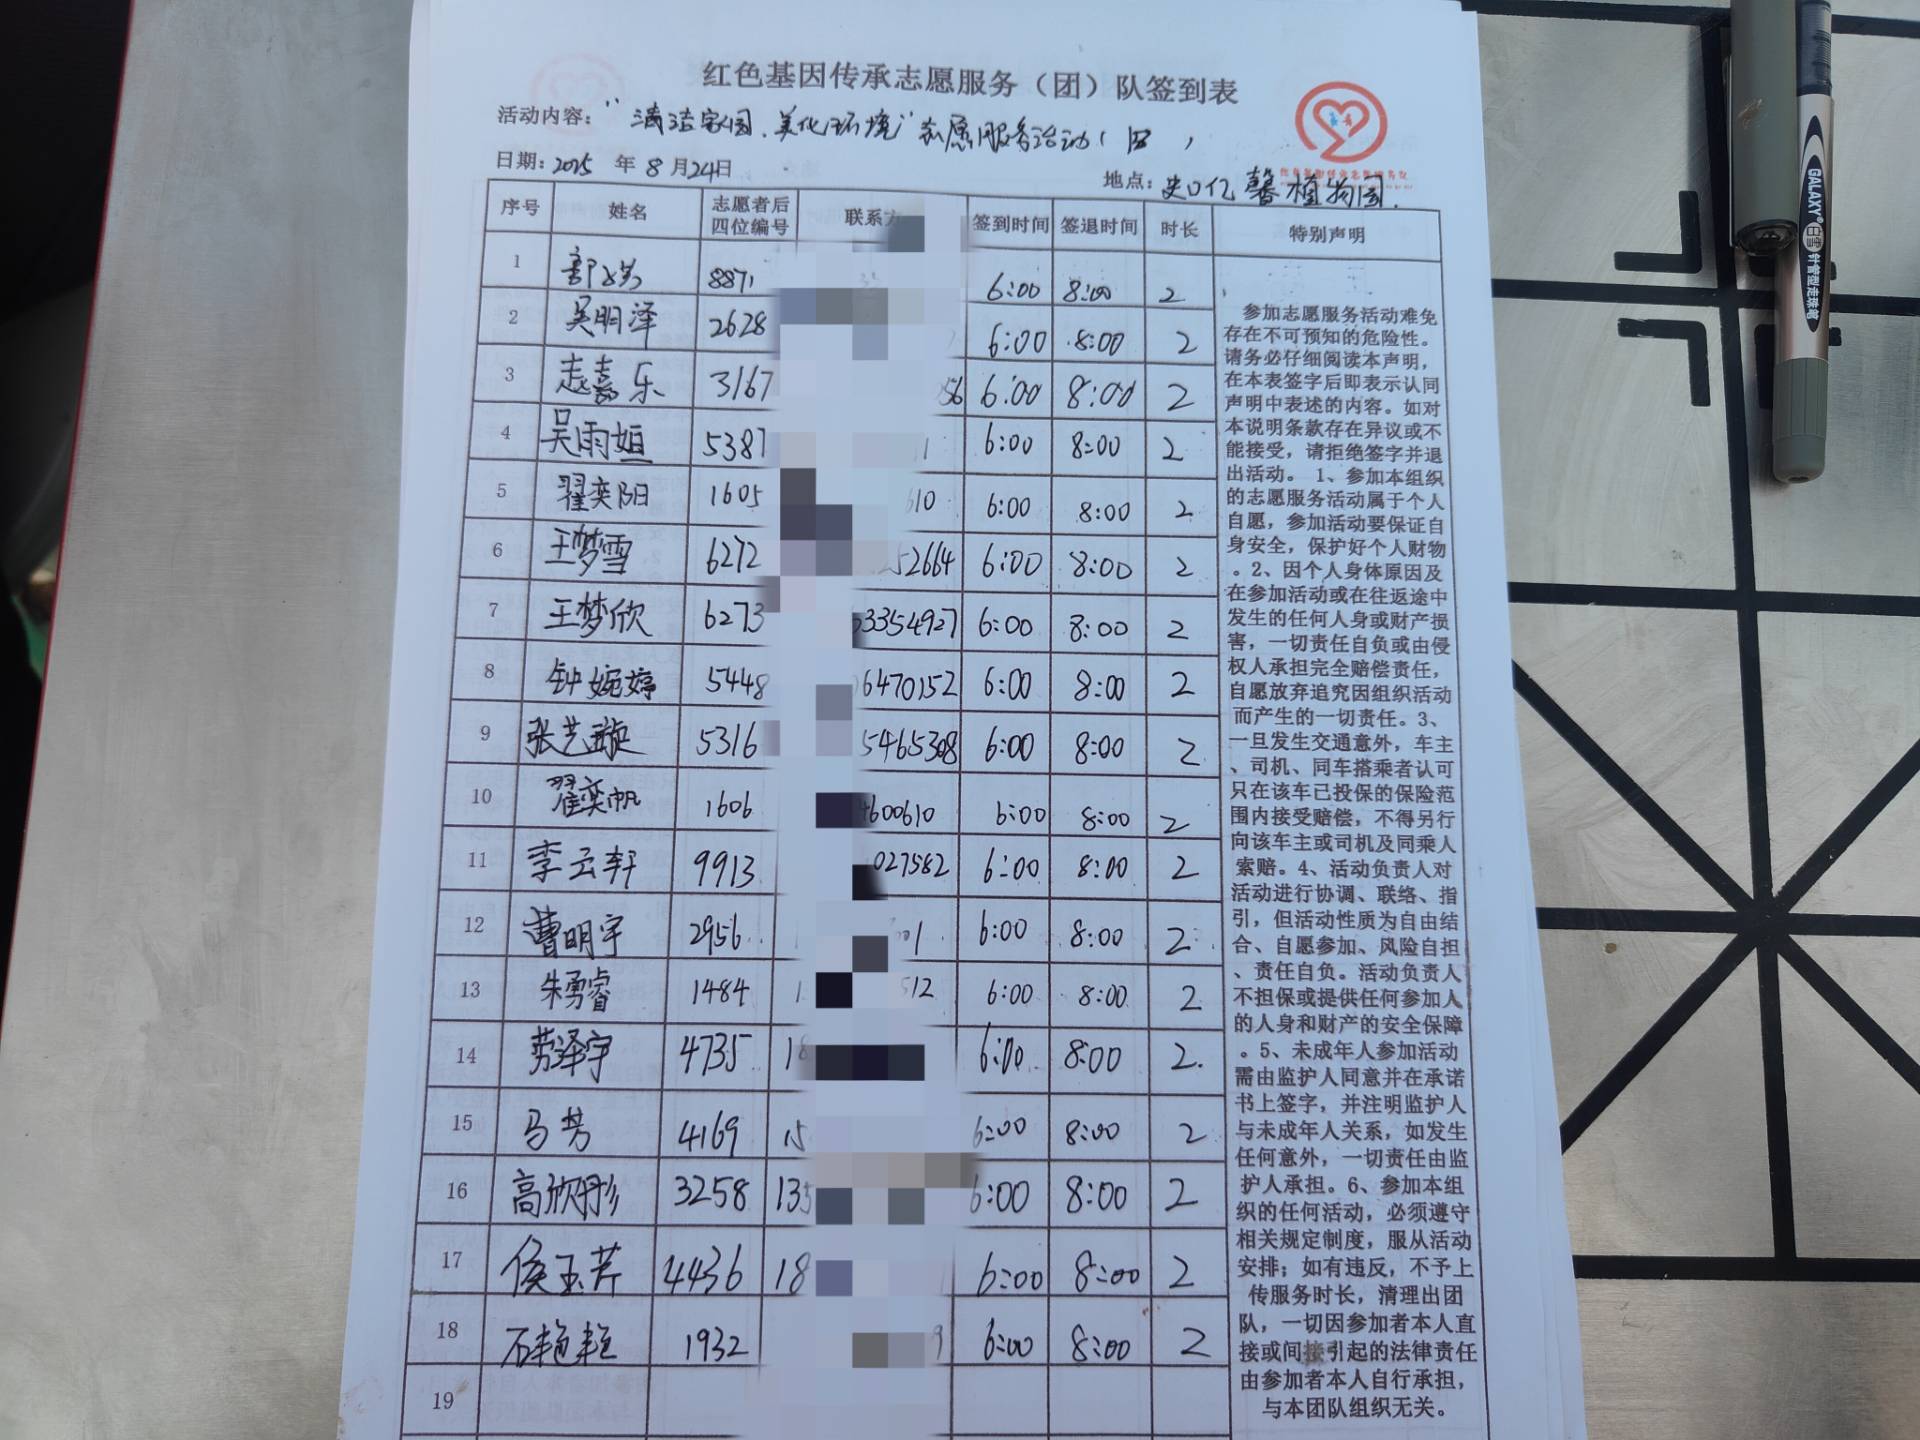 红色基因传承志愿服务（团）队签到表
活动内容："清洁家园、美化环境"志愿服务活动（四）
日期：2025年8月24日
地点：史口亿馨植物园.
序号 姓名 志愿者后四位编号 联系方 签到时间 签退时间 时长 特别声明
1 8871 6:00 8:00 2
2 吴明泽 2628 6:00 8:00 2
3 志嘉乐 3167 056 6:00 8:00 2
4 吴雨姮 5387 1 6:00 8:00 2
5 翟奕阳 1605 610 6:00 8:00 2
6 王梦雪 6272 52664 6:00 8:00 2
7 王梦欣 6273 33354927 6:00 8:00 2
8 钟婉婷 5448 6470152 6:00 8:00 2
9 张艺璇 5316 5465308 6:00 8:00 2
10 翟奕帆 1606 4600610 6:00 8:00 2
11 李云轩 9913 027582 6:00 8:00 2
12 曹明宇 2956 1 6:00 8:00 2
13 朱勇睿 1484 1 512 6:00 8:00 2
14 劳泽宇 4735 18 6:00 8:00 2.
15 马芳 4169 15 6:00 8:00 2
16 高欣彤 3258 135 6:00 8:00 2
17 侯玉芹 4436 18 6:00 8:00 2
18 石艳艳 1932 9 6:00 8:00 2
19
参加志愿服务活动难免
存在不可预知的危险性。
请务必仔细阅读本声明，
在本表签字后即表示认同
声明中表述的内容。如对
本说明条款存在异议或不
能接受，请拒绝签字并退
出活动。1、参加本组织
的志愿服务活动属于个人
自愿，参加活动要保证自
身安全，保护好个人财物
。2、因个人身体原因及
在参加活动或在往返途中
发生的任何人身或财产损
害，一切责任自负或由侵
权人承担完全赔偿责任，
自愿放弃追究因组织活动
而产生的一切责任。3、
一旦发生交通意外，车主
、司机、同车搭乘者认可
只在该车已投保的保险范
围内接受赔偿，不得另行
向该车主或司机及同乘人
索赔。4、活动负责人对
活动进行协调、联络、指
引，但活动性质为自由结
合、自愿参加、风险自担
、责任自负。活动负责人
不担保或提供任何参加人
的人身和财产的安全保障
。5、未成年人参加活动
需由监护人同意并在承诺
书上签字，并注明监护人
与未成年人关系，如发生
任何意外，一切责任由监
护人承担。6、参加本组
织的任何活动，必须遵守
相关规定制度，服从活动
安排；如有违反，不予上
传服务时长，清理出团
队，一切因参加者本人直
接或间接引起的法律责任
由参加者本人自行承担，
与本团队组织无关。
GALAXY® 白雪 针管型走珠笔